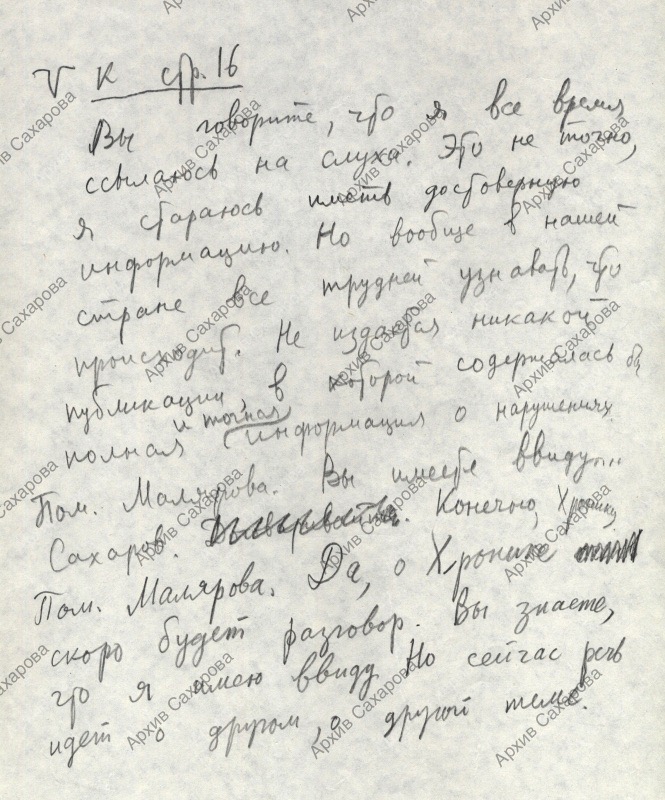 V к стр. 16
Вы говорите, что я все время
ссылаюсь на слуха. Это не точно,
я стараюсь иметь достоверную
информацию. Но вообще в нашей
стране все трудней узнавать, что
происходит. Не издается никакой
публикации, в которой содержалась бы
и точная
полная информация о нарушениях.
Пом. Малярова. Вы имеете ввиду...
Сахаров. Конечно, Хронику
Пом. Малярова. Да, о Хронике
скоро будет разговор. Вы знаете,
что я имею ввиду Но сейчас речь
идет о другом, о другой теме.
Архив Сахарова